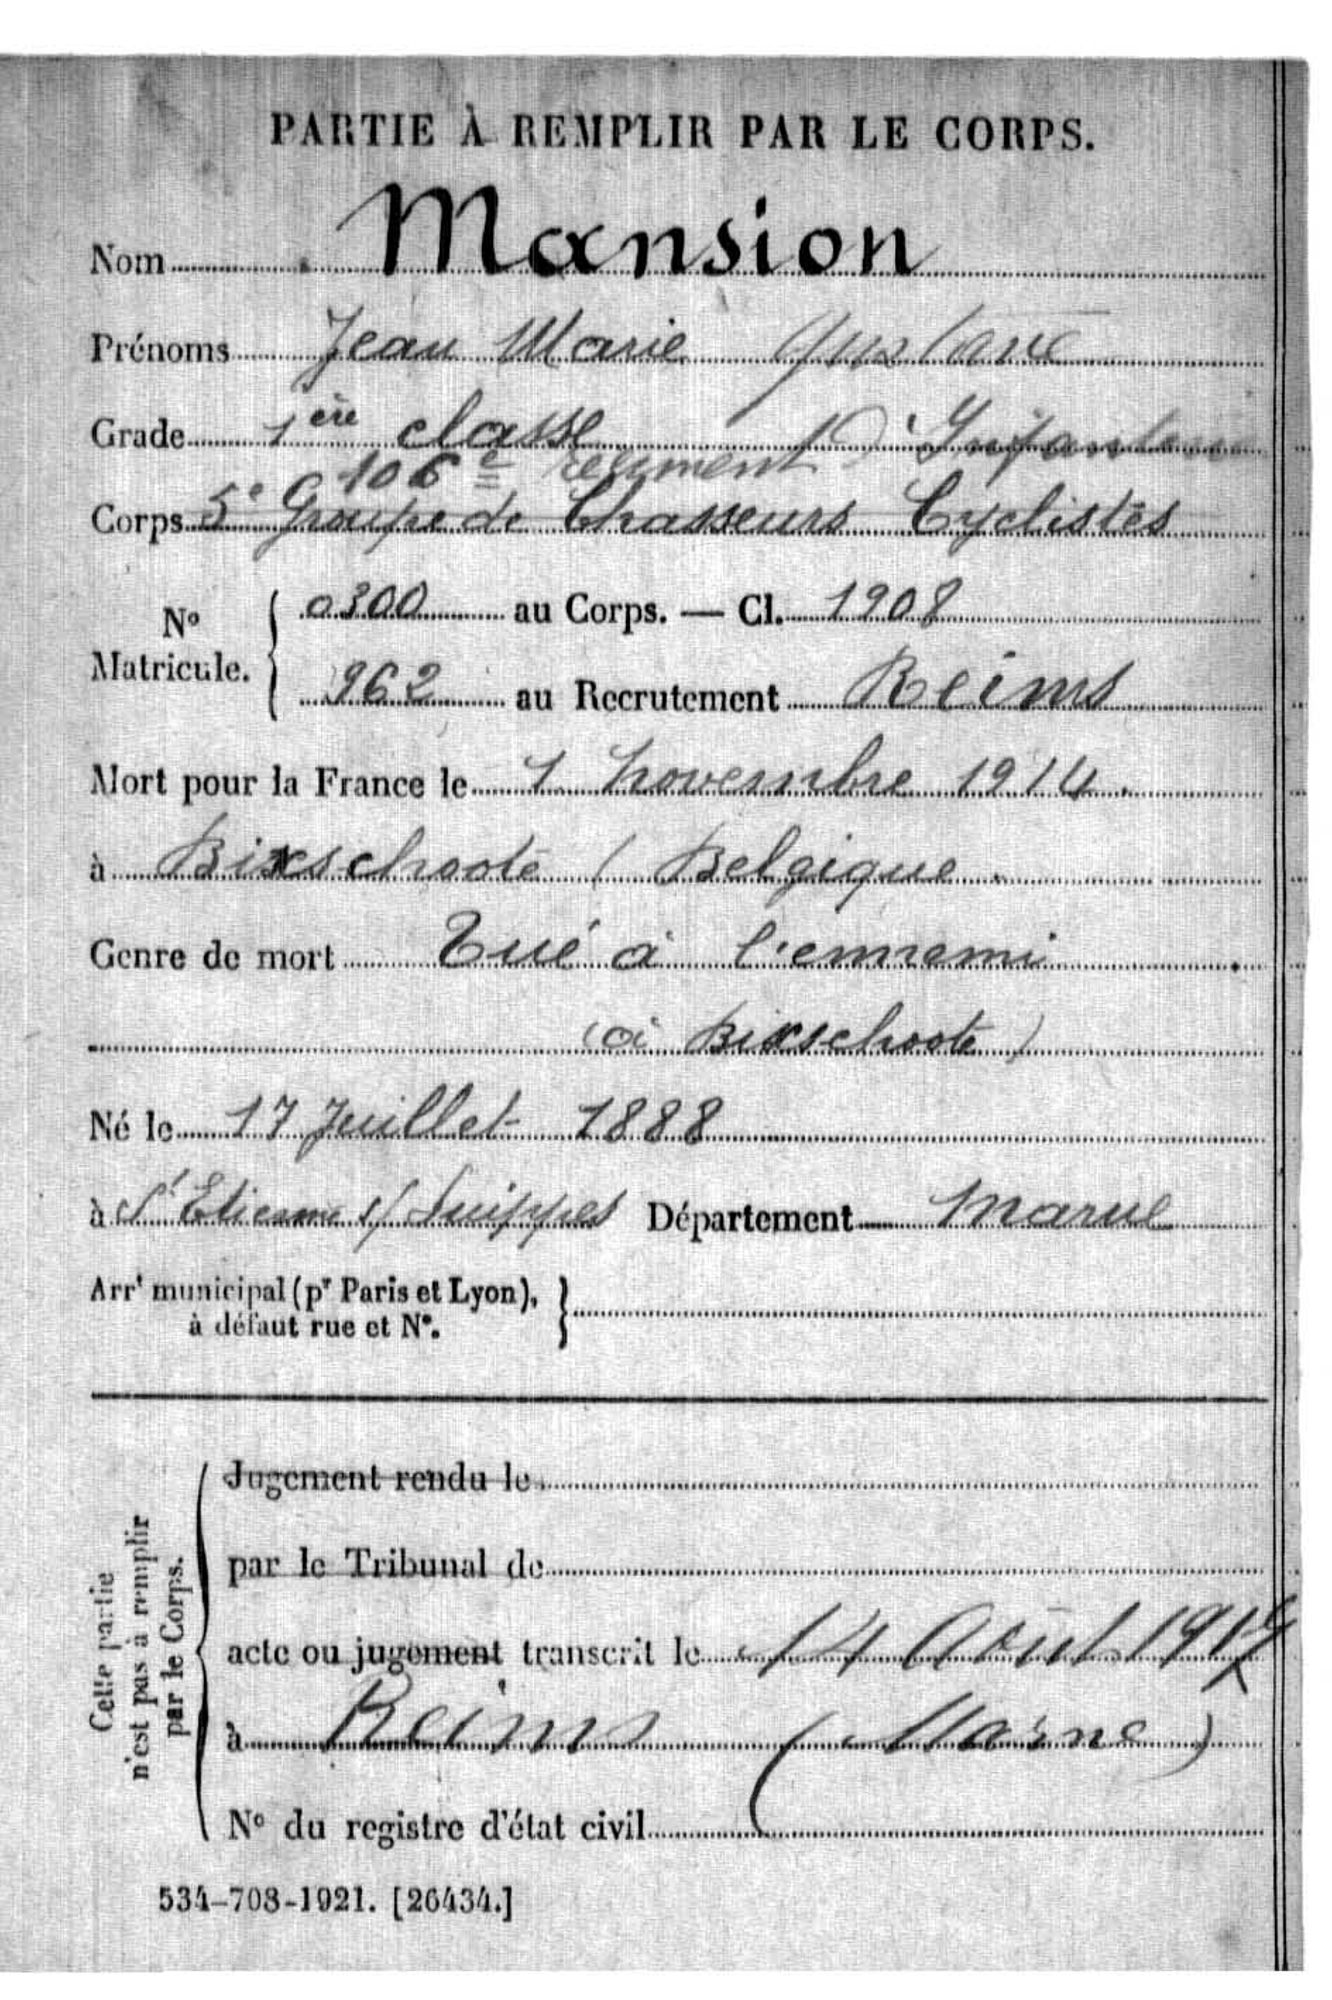 PARTIE À REMPLIR PAR LE CORPS.
Nom Mansion
Prénoms Jean Marie Gustave
Grade 1ère classe
106e régiment D'Infanterie
Corps 5e Groupe de Chasseurs Cyclistes
No Matricule. { 0300 au Corps. — Cl. 1908
962 au Recrutement Reims
Mort pour la France le 1 novembre 1914.
à Bixschoote ( Belgique.
Genre de mort Tué à l'ennemi
(à Bixschoote)
Né le 17 Juillet 1888
à St Etienne s/ Suippes Département Marne
Arrt municipal (pr Paris et Lyon), }
à défaut rue et No.
Cette partie
n'est pas à remplir
par le Corps.
Jugement rendu le
par le Tribunal de
acte ou jugement transcrit le 14 Août
à Reims (Marne)
No du registre d'état civil
534-708-1921. [26434.]